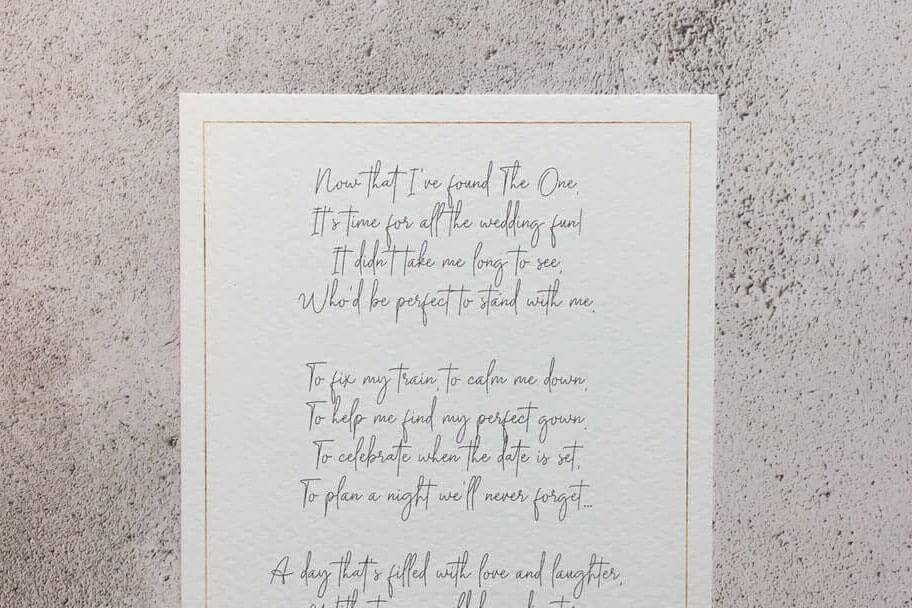 Now that I've found The One,
It's time for all the wedding fun!
It didn't take me long to see,
Who'd be perfect to stand with me.
To fix my train, to calm me down,
To help me find my perfect gown.
To celebrate when the date is set,
To plan a night we'll never forget...
A day that's filled with love and laughter,